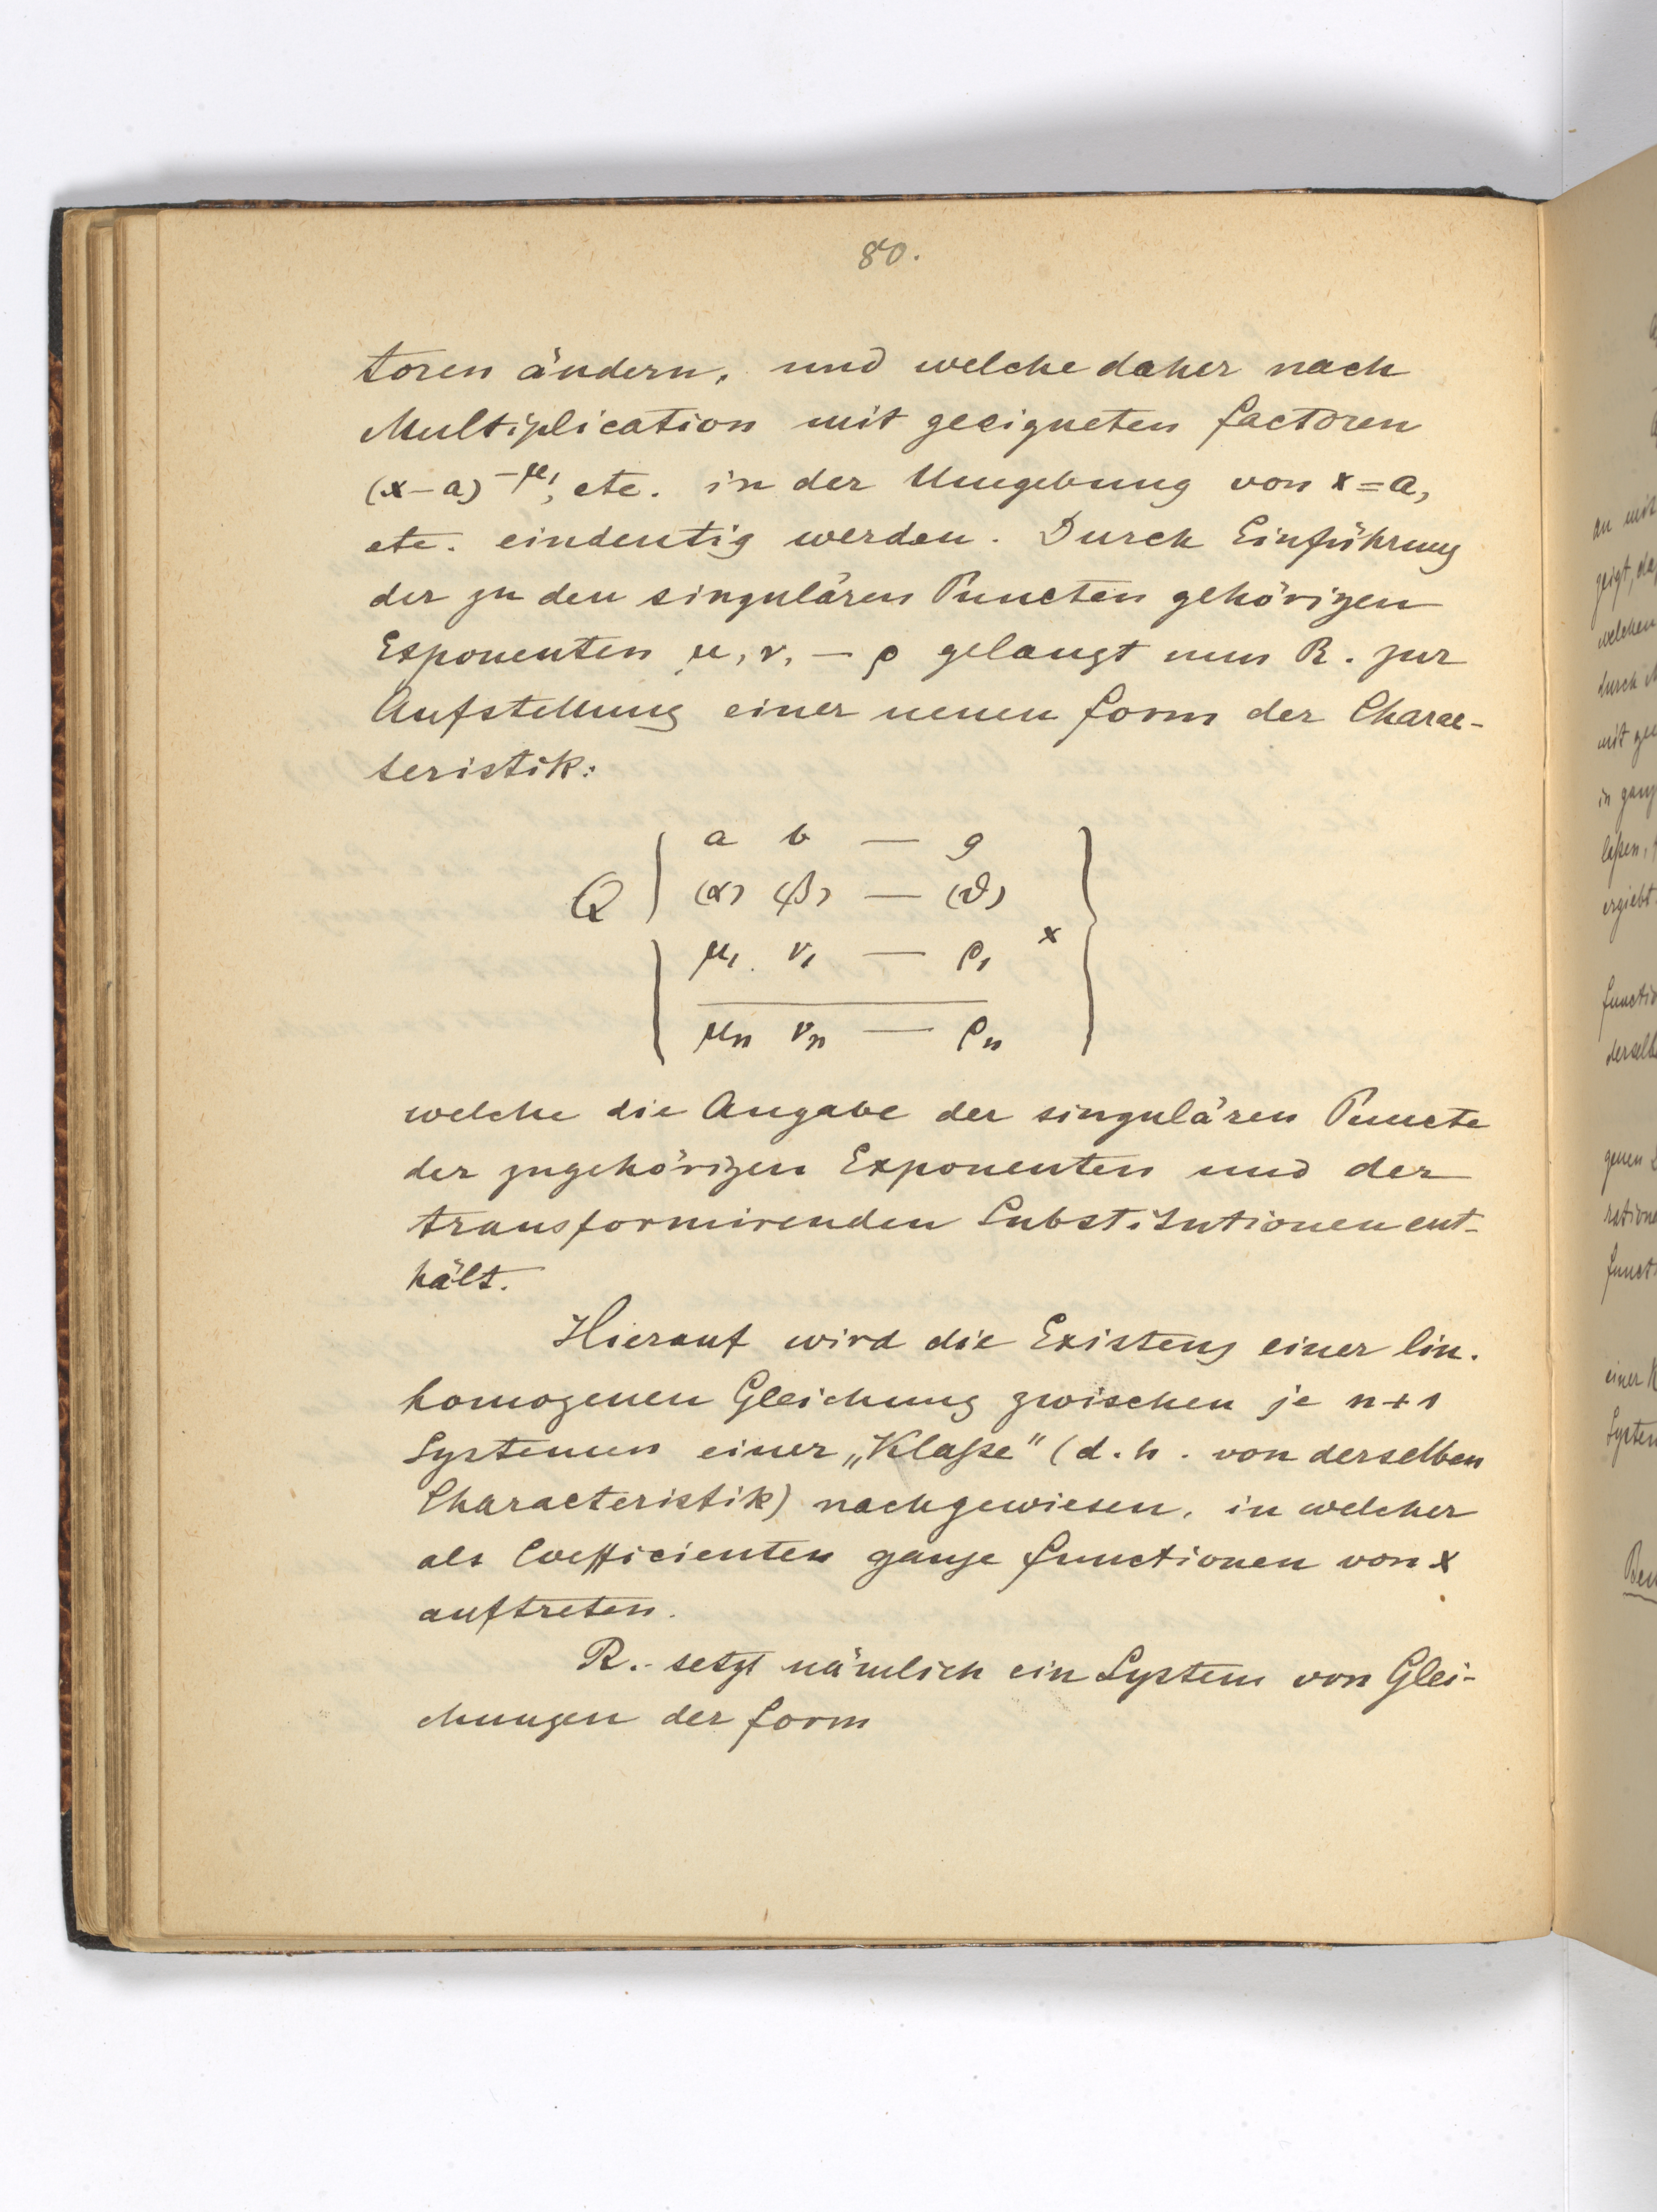 80.
toren ändern, und welche daher nach
Multiplication mit geeigneten Factoren
(x-a)^{-μ_1}, etc. in der Umgebung von x=a,
etc. eindeutig werden. Durch Einführung
der zu den singulären Puncten gehörigen
Exponenten μ, ν, — ρ gelangt nun R. zur
Aufstellung einer neuen Form der Charac-
teristik:
a b — g
Q (α) (β) — (ϑ)
μ_1 ν_1 — ρ_1 x
μ_n ν_n — ρ_n
welche die Angabe der singulären Puncte
der zugehörigen Exponenten und der
transformirenden Substitutionen ent-
hält.
Hierauf wird die Existenz einer lin.
homogenen Gleichung zwischen je n+1
Systemen einer „Klaße" (d. h. von derselben
Characteristik) nachgewiesen, in welcher
als Coefficienten ganze Functionen von x
auftreten.
R. setzt nämlich ein System von Glei-
chungen der Form
an mit
zeigt, da
welchen
durch
mit
in ganz
laßen,
ergiebt
Functio
derselb
genen
rationa
Funct
einer
System
Bew